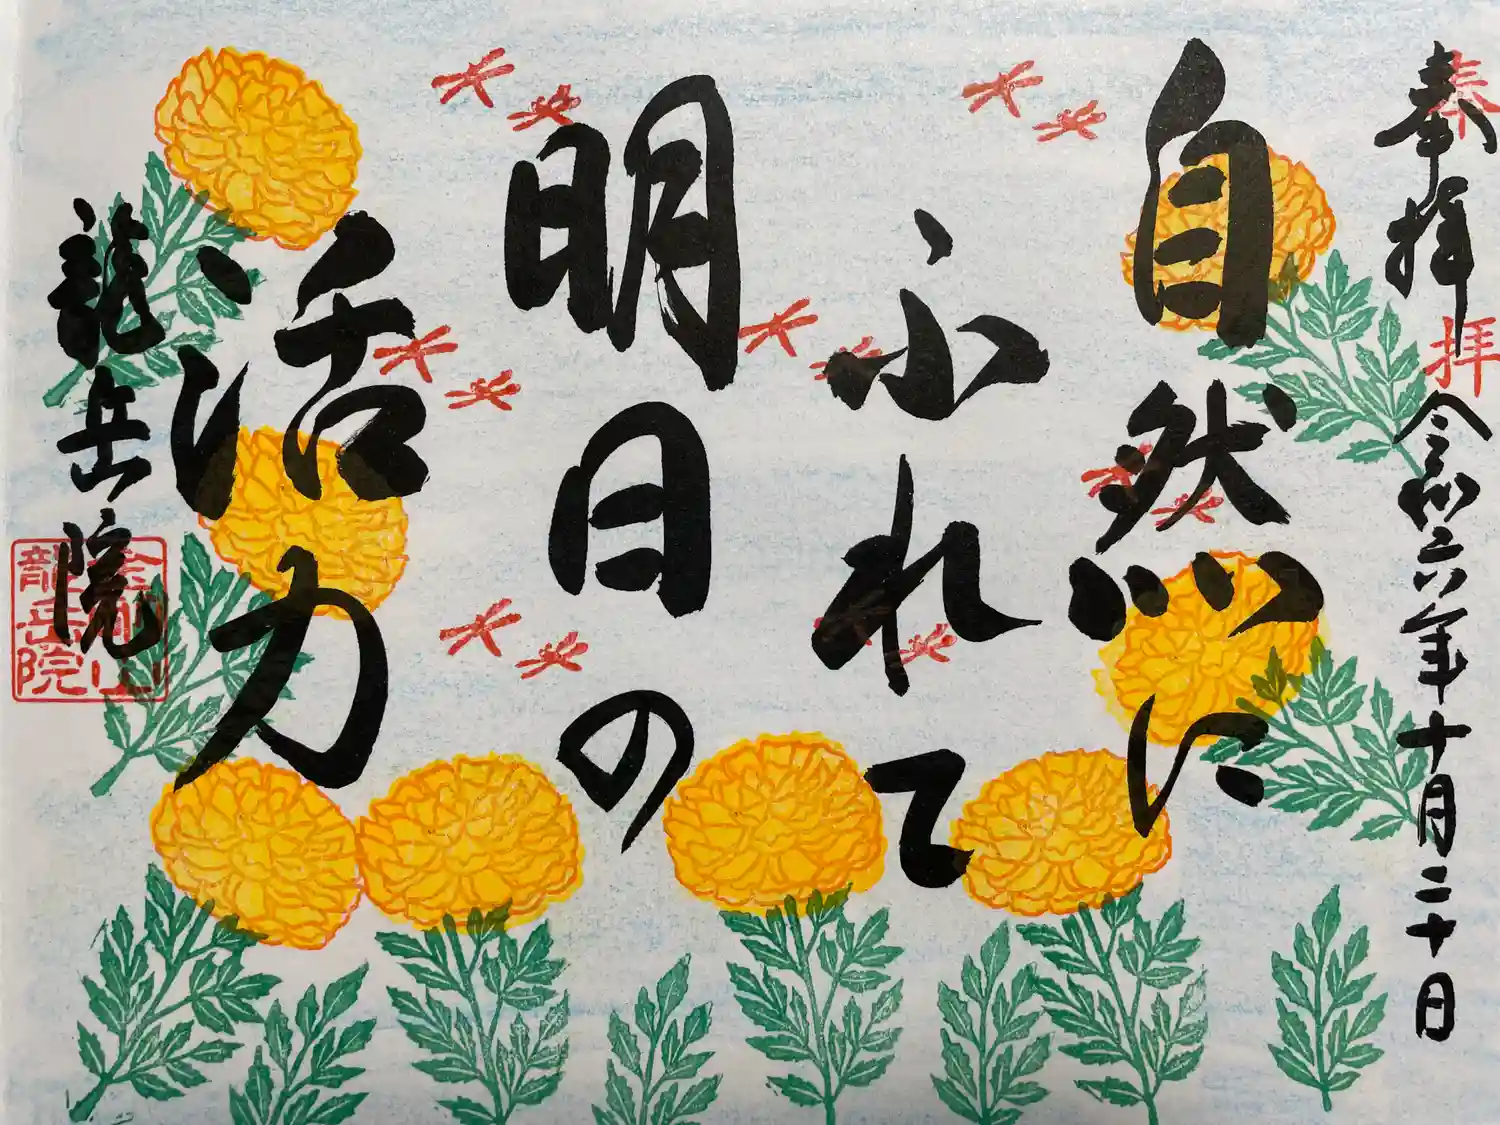 奉拝
奉拝
令和六年十月二十日
自然に
ふれて
明日の
活力
龍岳院
龍岳院